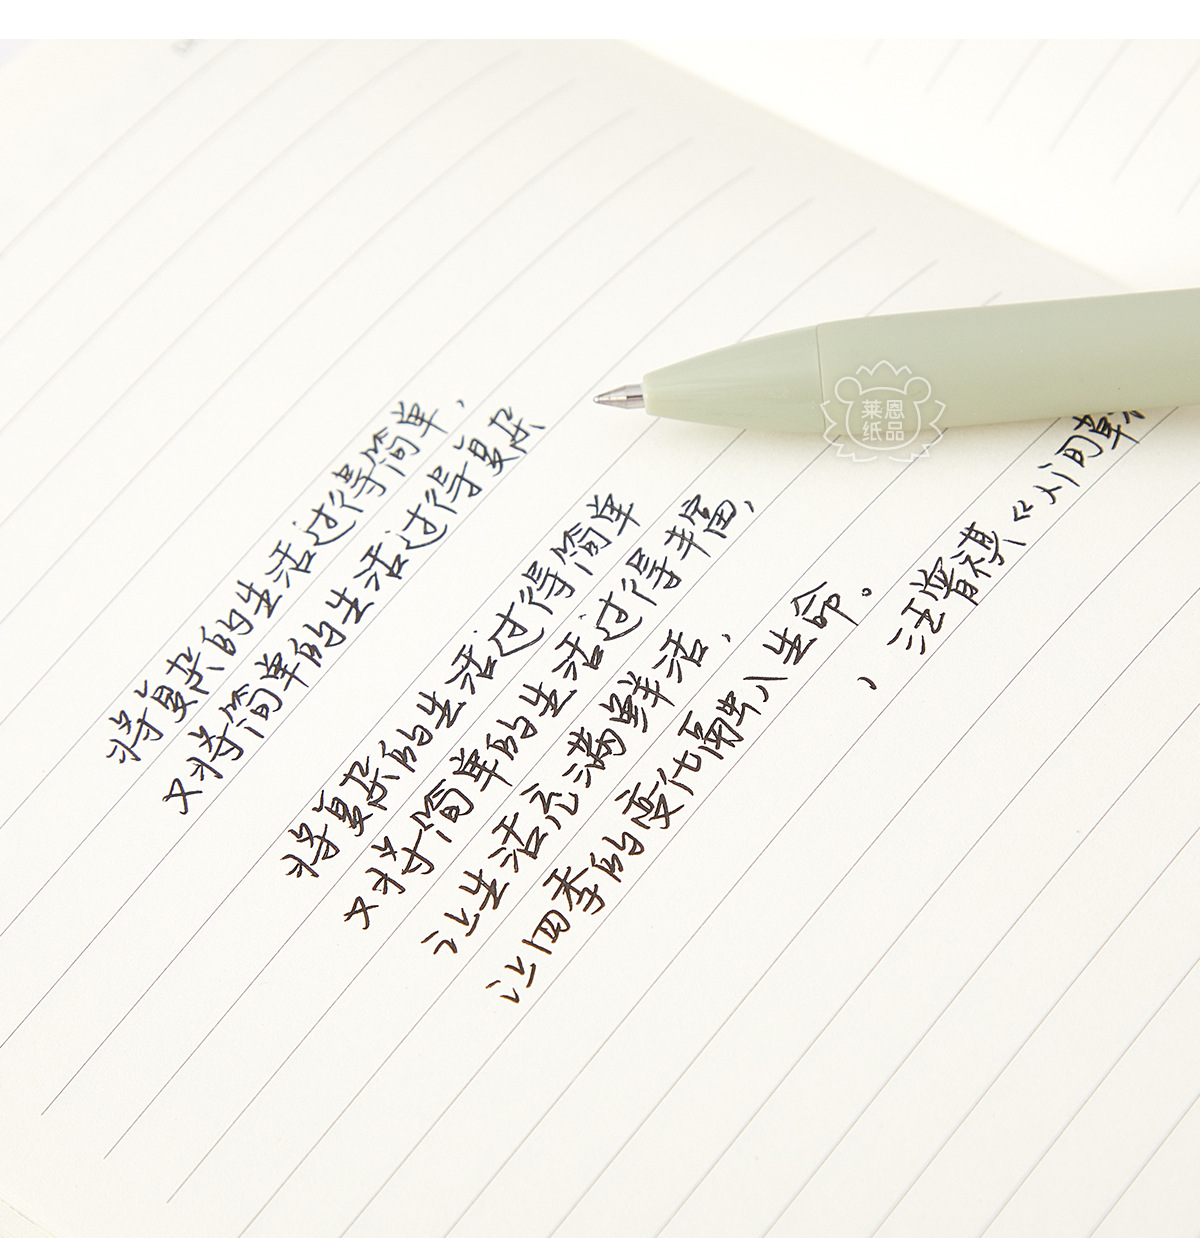 将复杂的生活过得简单，
又将简单的生活过得复杂
将复杂的生活过得简单
又将简单的生活过得丰富，
让生活充满鲜活，
让四季的变化融入生命。
，汪曾祺《人间草
莱恩
纸品